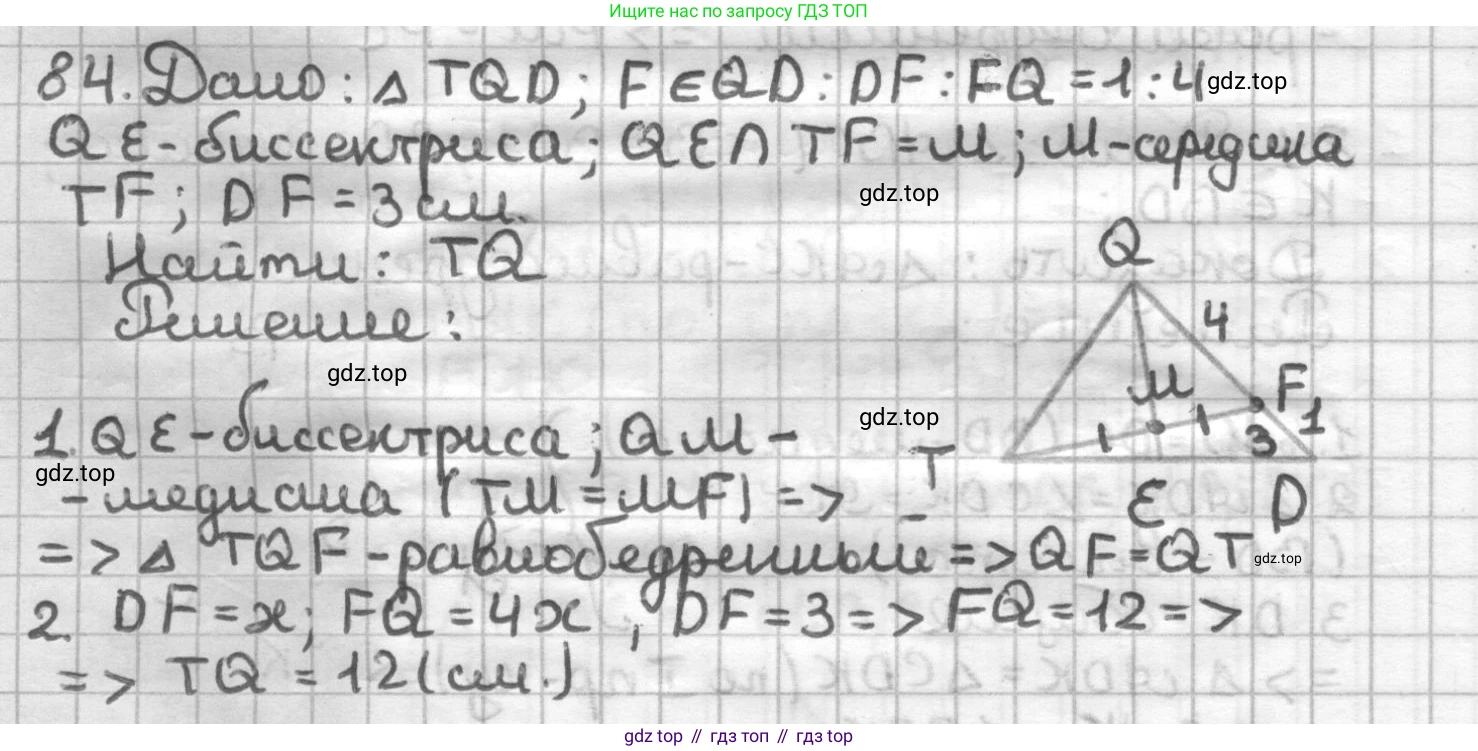 Ищите нас по запросу ГДЗ ТОП
84. Дано: △ TQD; F ∈ QD: DF : FQ = 1 : 4
gdz.top
QE - биссектриса; QE ∩ TF = M; M - середина
TF; DF = 3 см.
gdz.top
Найти: TQ
Решение:
Q
4
M
F
1
1
1
3
T
E
D
gdz.top
gdz.top
1. QE - биссектриса; QM -
gdz.top
- медиана (TM = MF) =>
=> △ TQF - равнобедренный => QF = QT
gdz.top
2. DF = x; FQ = 4x , DF = 3 => FQ = 12 =>
=> TQ = 12 (см.)
gdz top // гдз топ // гдз top